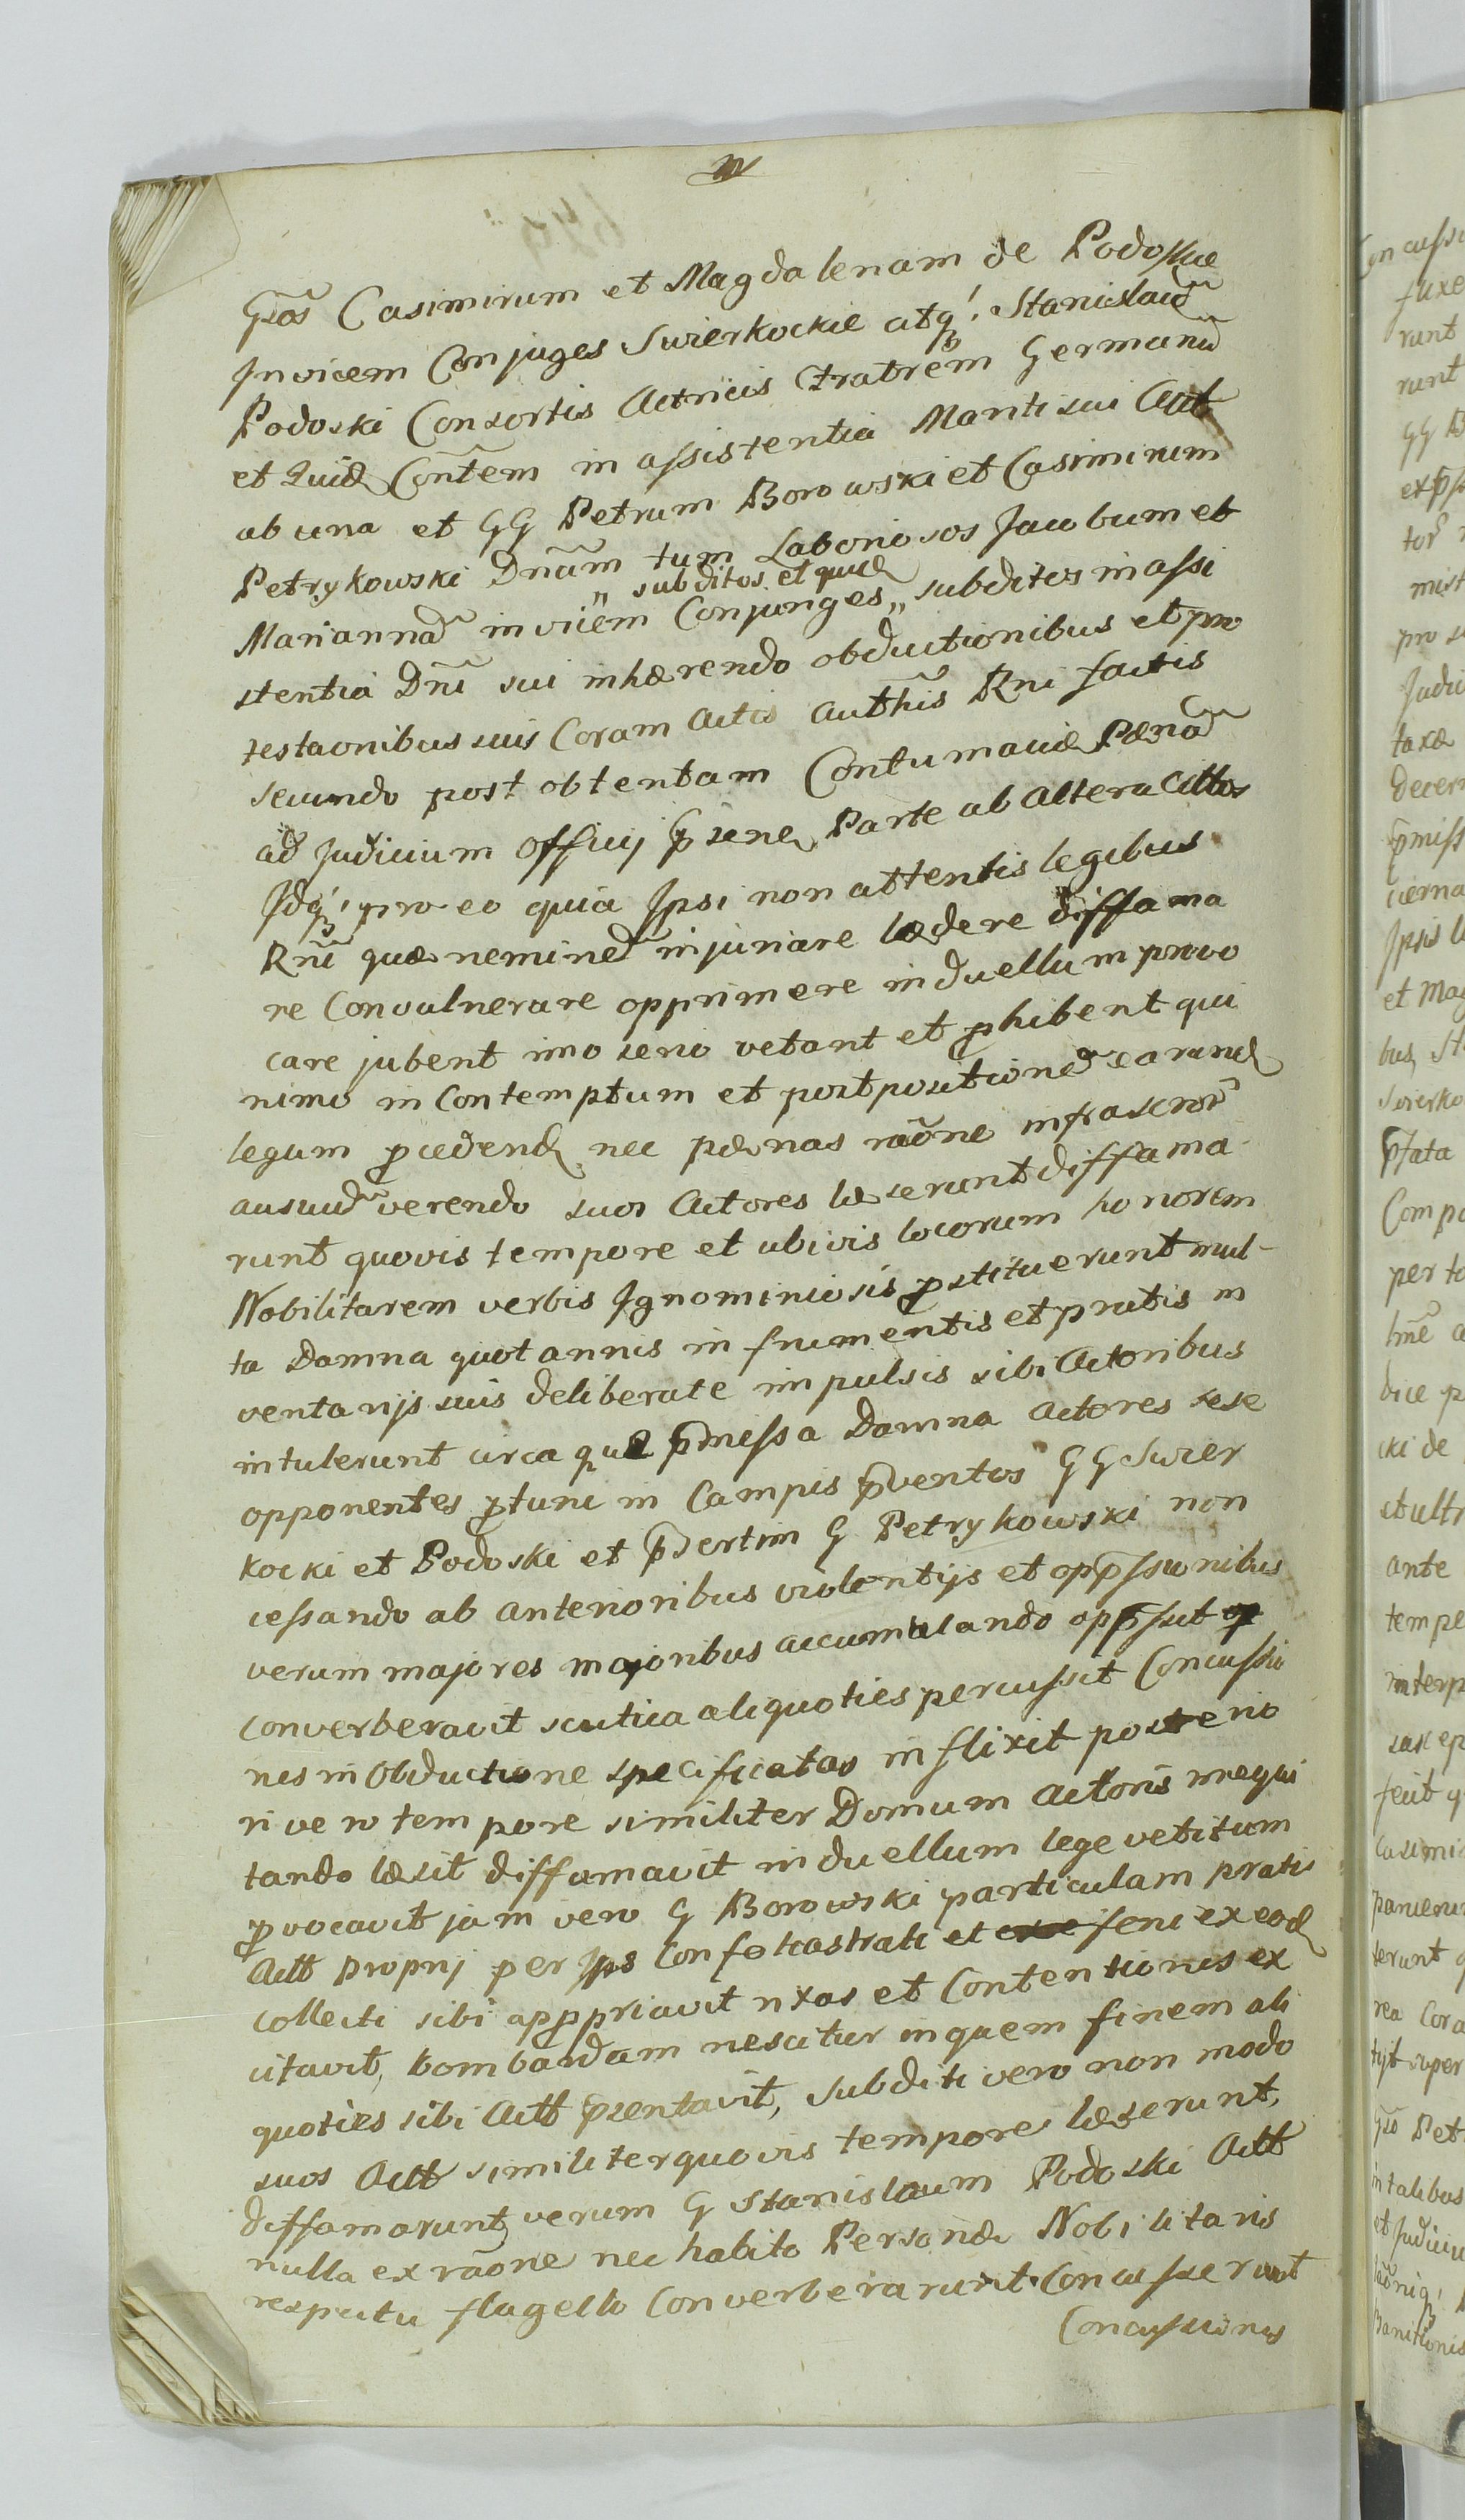 Gños Casimirum et Magdalenam de Podoskie
Invicem Conjuges Swierkockie atq; Stanislau͂
Podoski Consortis Actricis Fratrem Germanu͂
et Quid Con͂tem in assistentia Mariti sui Act
ab una et GG Petrum Borowski et Casimirum
Petrykowski Dnũm tum Laboriosos Jacobum et
„ subditos et quid
Marianna͂ invicem Conjunges „ subditos in assi
stentia Dnĩ sui inhærendo obductionibus et pro
testaonibus suis Coram Actis Auth͂is Rni factis
secundo post obtentam Contumaciæ Pæna͂
ad Judicium Officij p̃sene Parte ab altera Cittos
Idq; pro eo quia Ipsi non attentis legibus
Rnĩ quæ nemine͂ injuriare lædere diffama
re Convulnerare opprimere in duellum provo
care jubent imo serio vetant et phibent qui
nimo in Contemptum et postpositione͂ earund
legum pcedend nec pænas raõne infrascrõr
ausuu͂ verendo suos Actores læserunt diffama
runt quovis tempore et ubivis locorum honorem
Nobilitarem verbis Ignominiosis pstituerunt mul-
ta Damna quotannis in frumentis et pratis in
ventarijs suis deliberate impulsis sibi Actoribus
intulerunt circa quæ p̃missa Damna Actores sese
opponentes ptunc in Campis p̃ventos GG Swier
kocki et Podoski et p̃sertim G Petrykowski non
cessando ab anterioribus violentijs et opp̃ssionibus
verum majores majoribus accumulando opp̃ssit
converberavit scutica aliquoties percussit Concussio
nes in Obductione specificatas inflixit posterio
ri vero tempore similiter Domum Actoris inequi
tando læsit diffamavit in duellum lege vetitum
pvocavit jam vero G Borowski particulam prati
Actt proprij per Ips Confalcastrati et feni ex eod
collecti sibi apppriavit rixas et Contentiones ex
citavit, bombardam nescitur in quem finem ali
quoties sibi Actt p̃sentavit, Subditi vero non modo
suos Actt similiter quovis tempore læserunt,
diffamarunt, verum G Stanislaum Podoski Actt
nulla ex raone nec habito Personæ Nobilitaris
respectu flagello Converberarunt Concusserunt
Concussiones